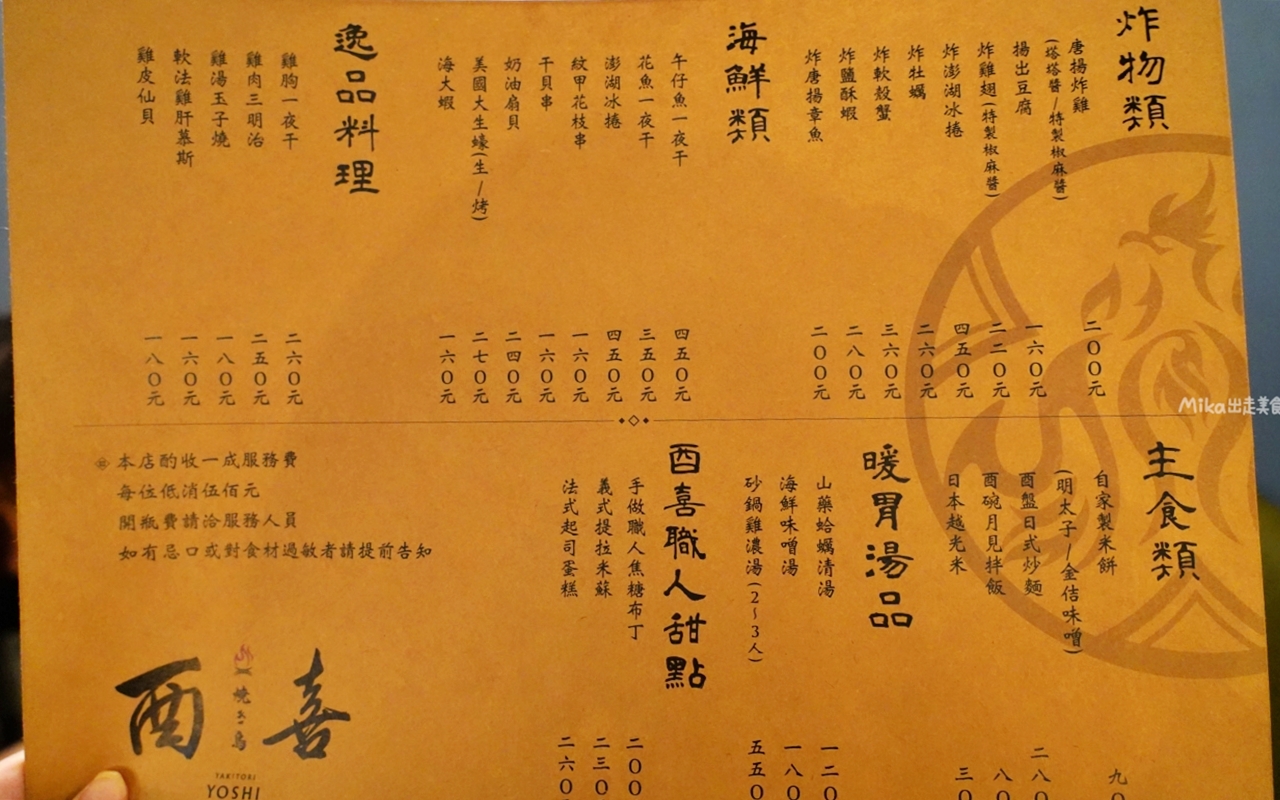 炸物類
唐揚炸雞
(塔塔醬/特製椒麻醬)
二00元
揚出豆腐
一六0元
炸雞翅(特製椒麻醬)
二二0元
炸澎湖冰捲
四五0元
炸牡蠣
二六0元
炸軟殼蟹
三六0元
炸鹽酥蝦
二八0元
炸唐揚章魚
二00元
海鮮類
午仔魚一夜干
四五0元
花魚一夜干
三五0元
澎湖冰捲
四五0元
紋甲花枝串
一六0元
干貝串
一六0元
奶油扇貝
二四0元
美國大生蠔(生/烤)
二七0元
海大蝦
一六0元
逸品料理
雞胸一夜干
二六0元
雞肉三明治
二五0元
雞湯玉子燒
一八0元
軟法雞肝慕斯
一六0元
雞皮仙貝
一八0元
主食類
自家製米餅
(明太子/金佶味噌)
九0
酉盤日式炒麵
二八0
酉碗月見拌飯
八0
日本越光米
三0
暖胃湯品
山藥蛤蠣清湯
一二0
海鮮味噌湯
一八0
砂鍋雞濃湯(2~3人)
五五0
酉喜職人甜點
手做職人焦糖布丁
二00
義式提拉米蘇
二三0
法式起司蛋糕
二六0
※本店酌收一成服務費
每位低消伍佰元
開瓶費請洽服務人員
如有忌口或對食材過敏者請提前告知
酉喜
燒き鳥
YAKITORI
YOSHI
Mika出走美食